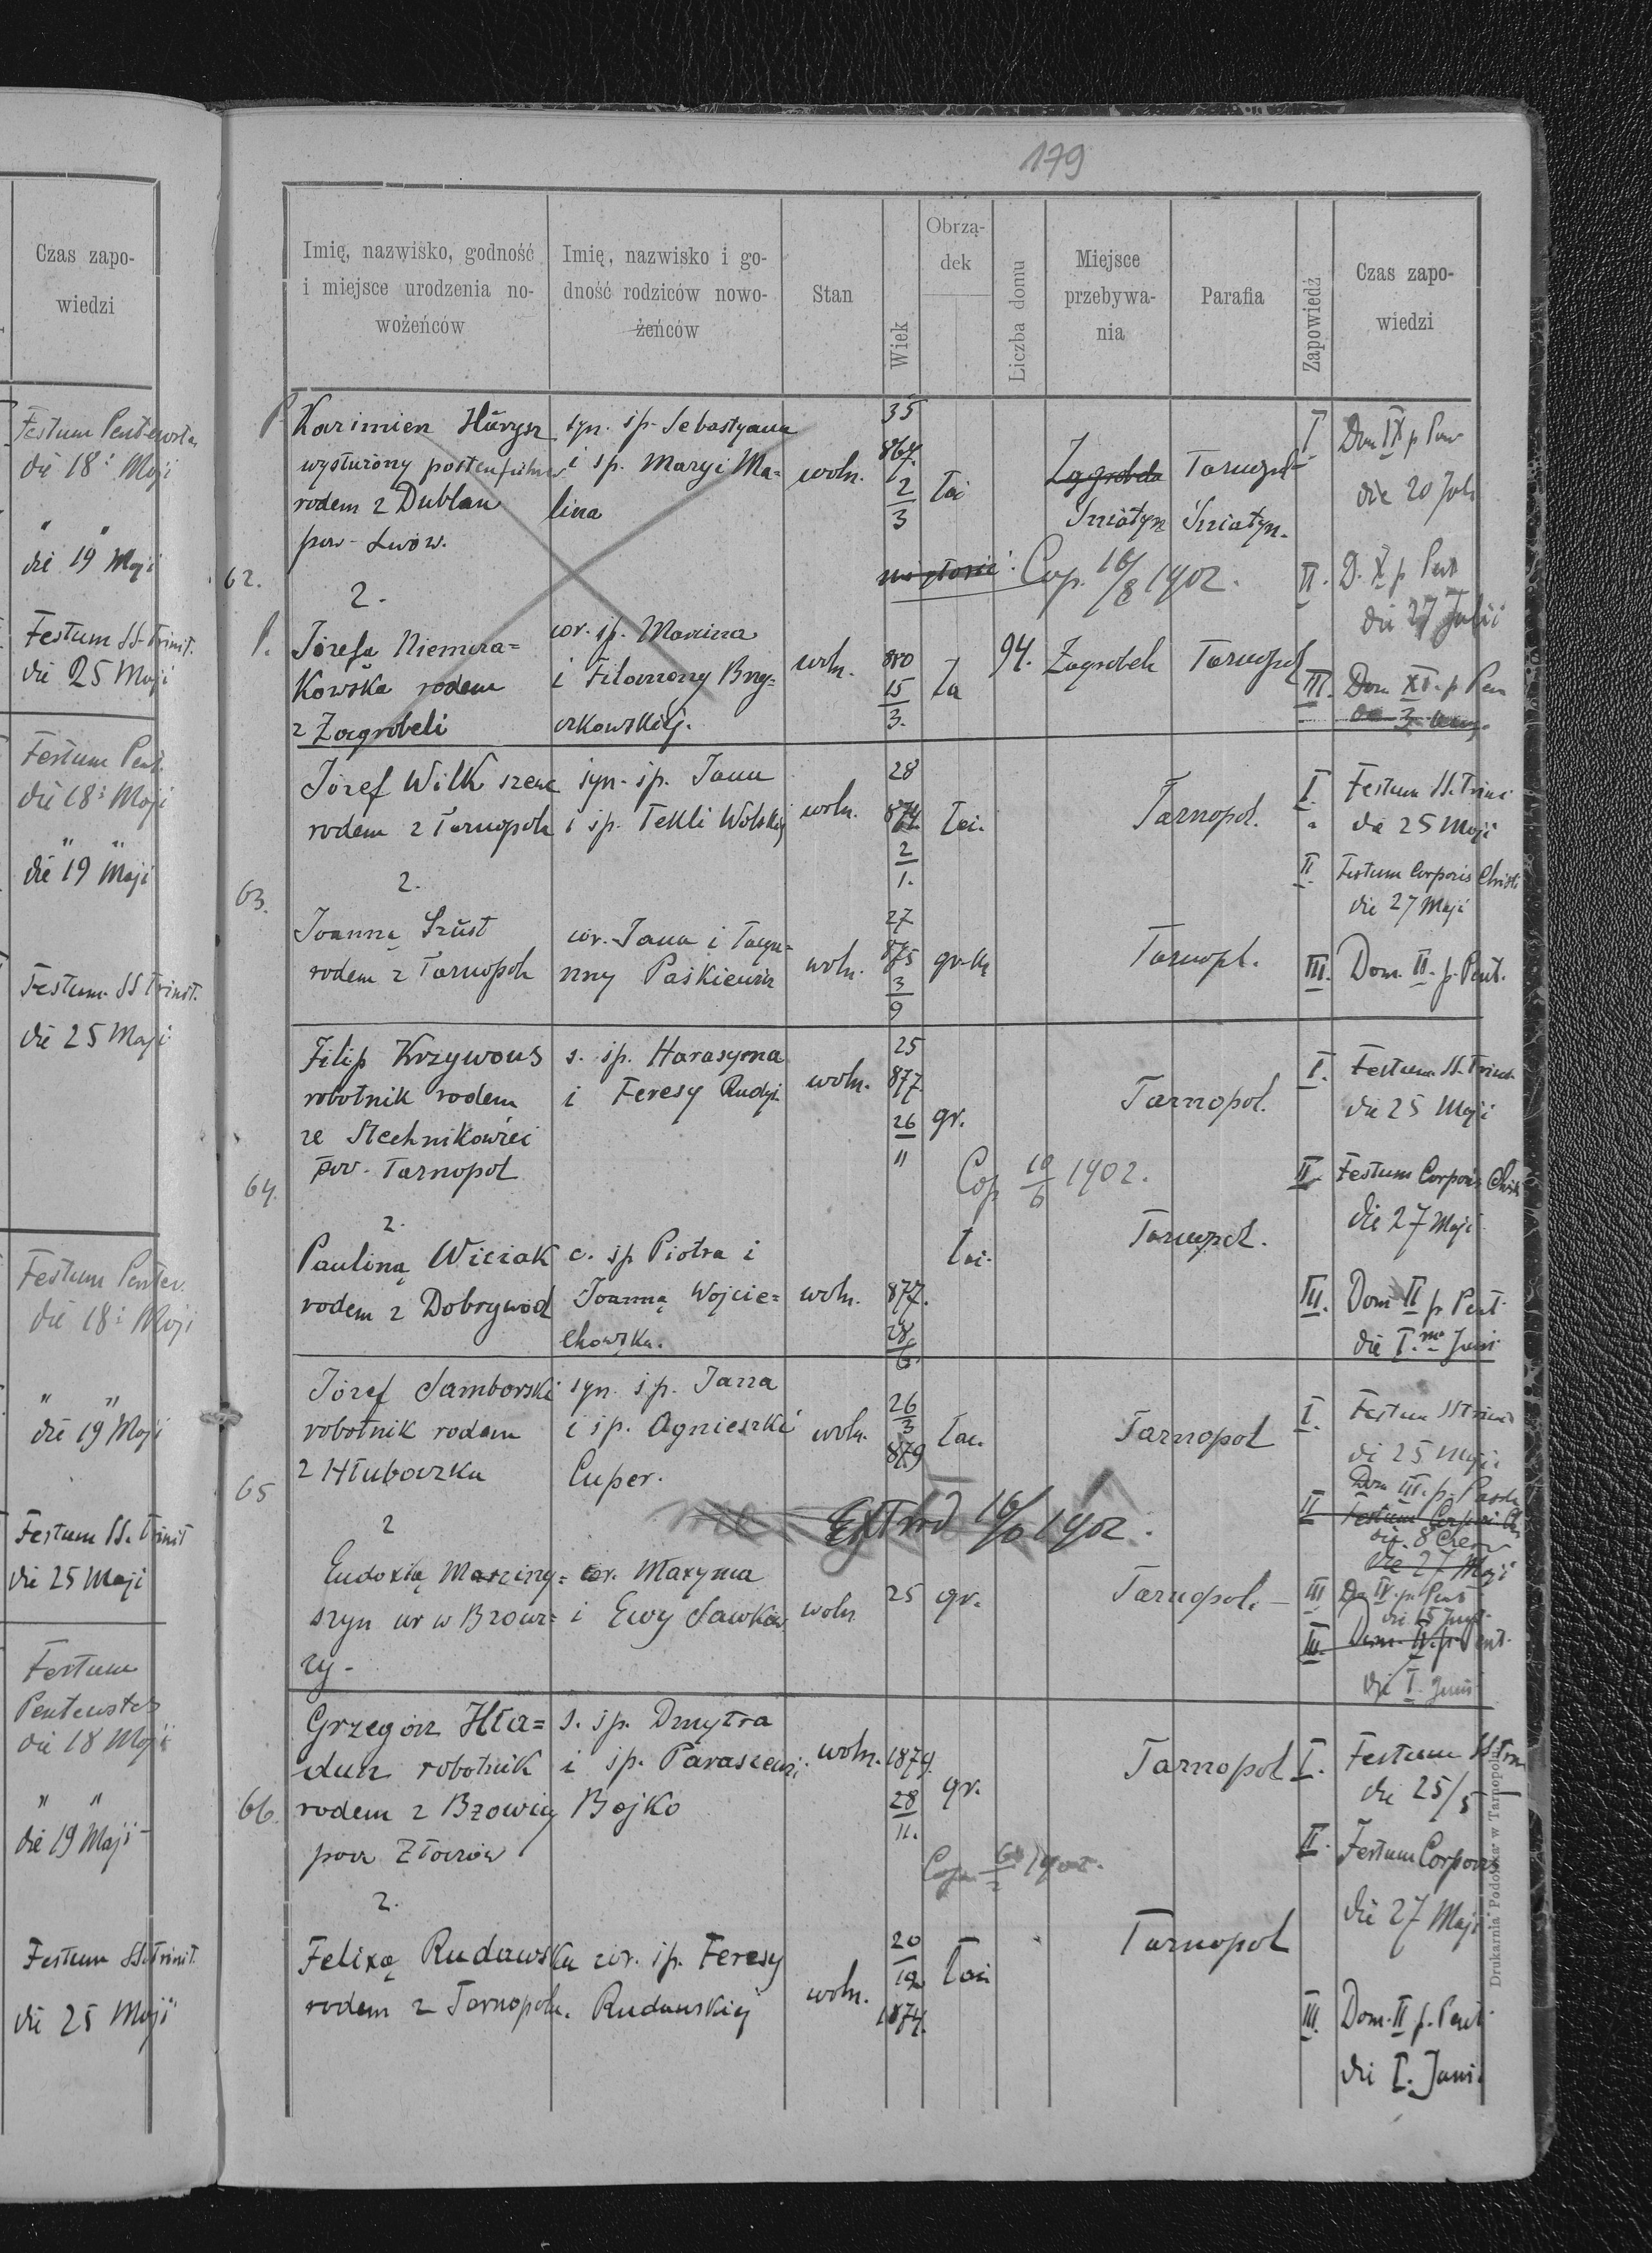 Czas zapo-
wiedzi
Festum Pentecostes
die 18: Maji
" "
die 19 Maji
Festum SS. Trinit.
die 25 Maji
Festum Pent.
die 18: Maji
" "
die 19 Maji
Festum SS Trinit.
die 25 Maji
Festum Pentec.
die 18: Maji
" "
die 19 Maji
Festum SS. Trinit
die 25 Maji
Festum
Pentecostes
die 18 Maji
" "
die 19 Maji
Festum SS. Trinit.
die 25 Maji
179
Imię, nazwisko, godność
i miejsce urodzenia no-
wożeńców
Imię, nazwisko i go-
dność rodziców nowo-
żeńców
Stan
Wiek
Obrzą-
dek
Liczba domu
Miejsce
przebywa-
nia
Parafia
Zapowiedź
Czas zapo-
wiedzi
62.
P.
Kazimierz
wysłużony
rodem z Dublan
pow. Lwów.
syn. śp. Sebastyana
i śp. Maryi Ma-
lina
woln.
35
867.
2
3
łać
Zagrobela
Śniatyn
Tarnopol
Śniatyn.
Cop. 16/8 1902.
2.
P.
Józefa Niemira=
kowska rodem
z Zagrobeli
cór. śp. Marcina
woln.
880
15
3.
ła
94.
Zagrobela
Tarnopol
I
Dom IX p Pen
die 20 Juli
II.
D. X p. Pent
die 27 Julii
III.
Dom XI. p Pen
63.
Józef Wilk szewc
rodem z Tarnopola
syn. śp. Jana
i śp. Tekli Wolskiej
woln.
28
874.
2
1.
łać.
Tarnopol.
2.
Joanną Szust
rodem z Tarnopola
cór. Jana i
nny Paśkiewicz
woln.
27
875
3
9
gr.
Tarnopl.
I.
Festum SS. Trini
die 25 Maji
II.
Festum Corporis Christi
die 27 Maji
III.
Dom. II. p. Pent.
64.
Filip Krzywous
robotnik rodem
ze Stechnikowiec
pow. Tarnopol
s. śp. Harasyma
i Teresy Rudyj
woln.
25
877
26
11
gr.
Tarnopol.
Cop 10/6 1902.
2.
Pauliną Wiciak
rodem z Dobrywód
c. śp Piotra i
Joanną Wojcie=
chowska.
woln.
877.
28
6.
łać.
Tarnopol.
I.
Festum SS. Trinit
die 25 Maji
II
Festum Corporis Christi
die 27 Maji
III.
Dom II p Pent.
die I.ma Juni
65
Józef Samborski
robotnik rodem
z Hłuboczka
syn. śp. Jana
i śp. Agnieszki
Cuper.
woln.
26
3
879
łać.
Tarnopol
Extrad 16/6 1902.
2
Eudoxią
szyn ur w
cy-
cór. Maxyma
i Ewy
woln
25
gr.
Tarnopol.
I.
Festum SS Trinit
di 25 Maji
II
Dom III. p.
Festum Corporis
die 8
die 27 Maji
III
Do IV. p. Pent
die 15
III.
Dom. II. p. Pent.
die I. Juni
66.
Grzegorz Hła=
dun robotnik
rodem z Bzowicy
pow Złoczów
s. śp. Dmytra
i śp. Parascewi
Bojko
woln.
1879.
28
11.
gr.
Tarnopol
2.
Felixą Rudawska
rodem z Tarnopola.
cór. śp. Teresy
Rudawskiej
woln.
20
1874.
łać
Tarnopol
I.
Festum SS Trin
die 25/5
II.
Festum Corporis
die 27 Maji
III.
Dom. II p. Pent.
die I. Juni.
Drukarnia Podolska w Tarnopolu